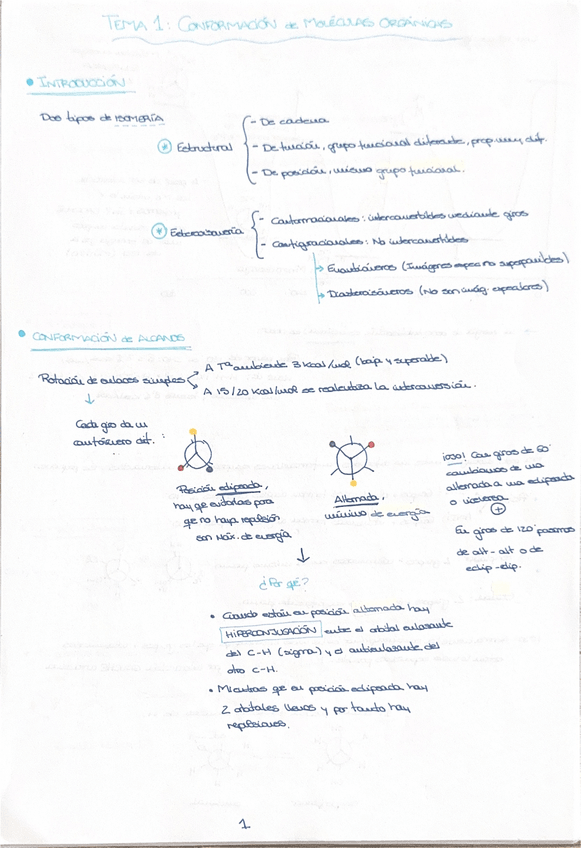 TEMA 1: CONFORMACIÓN de MOLÉCULAS ORGÁNICAS
• INTRODUCCIÓN
Dos tipos de ISOMERÍA
* Estructural
- De cadena
- De función, grupo funcional diferente, prop muy dif.
- De posición, mismo grupo funcional.
* Estereoisomería
- Conformacionales: interconvertibles mediante giros
- Configuracionales: No interconvertibles
→ Enantiómeros (Imágenes espec no superponibles)
→ Diastereoisómeros (No son imág. especulares)
• CONFORMACIÓN de ALCANOS
Rotación de enlaces simples
A Tª ambiente 3 kcal/mol (baja y superable)
A 15/20 kcal/mol se realentiza la interconversión.
↓
Cada giro da un
confórmero dif. :
Posición eclipsada,
hay qe evitarlas para
qe no haya repulsión
son Máx. de energía
Alternada,
mínimo de energía
¡OJO! Con giros de 60°
cambiamos de una
alternada a una eclipsada
o viceversa
+
En giros de 120° pasamos
de alt-alt o de
eclip-eclip.
↓
¿Por qé?
• Cuando están en posición alternada hay
HIPERCONJUGACIÓN entre el orbital enlazante
del C-H (sigma) y el antienlazante del
otro C-H.
• Mientras qe en posición eclipsada hay
2 orbitales llenos y por tanto hay
repulsiones.
1